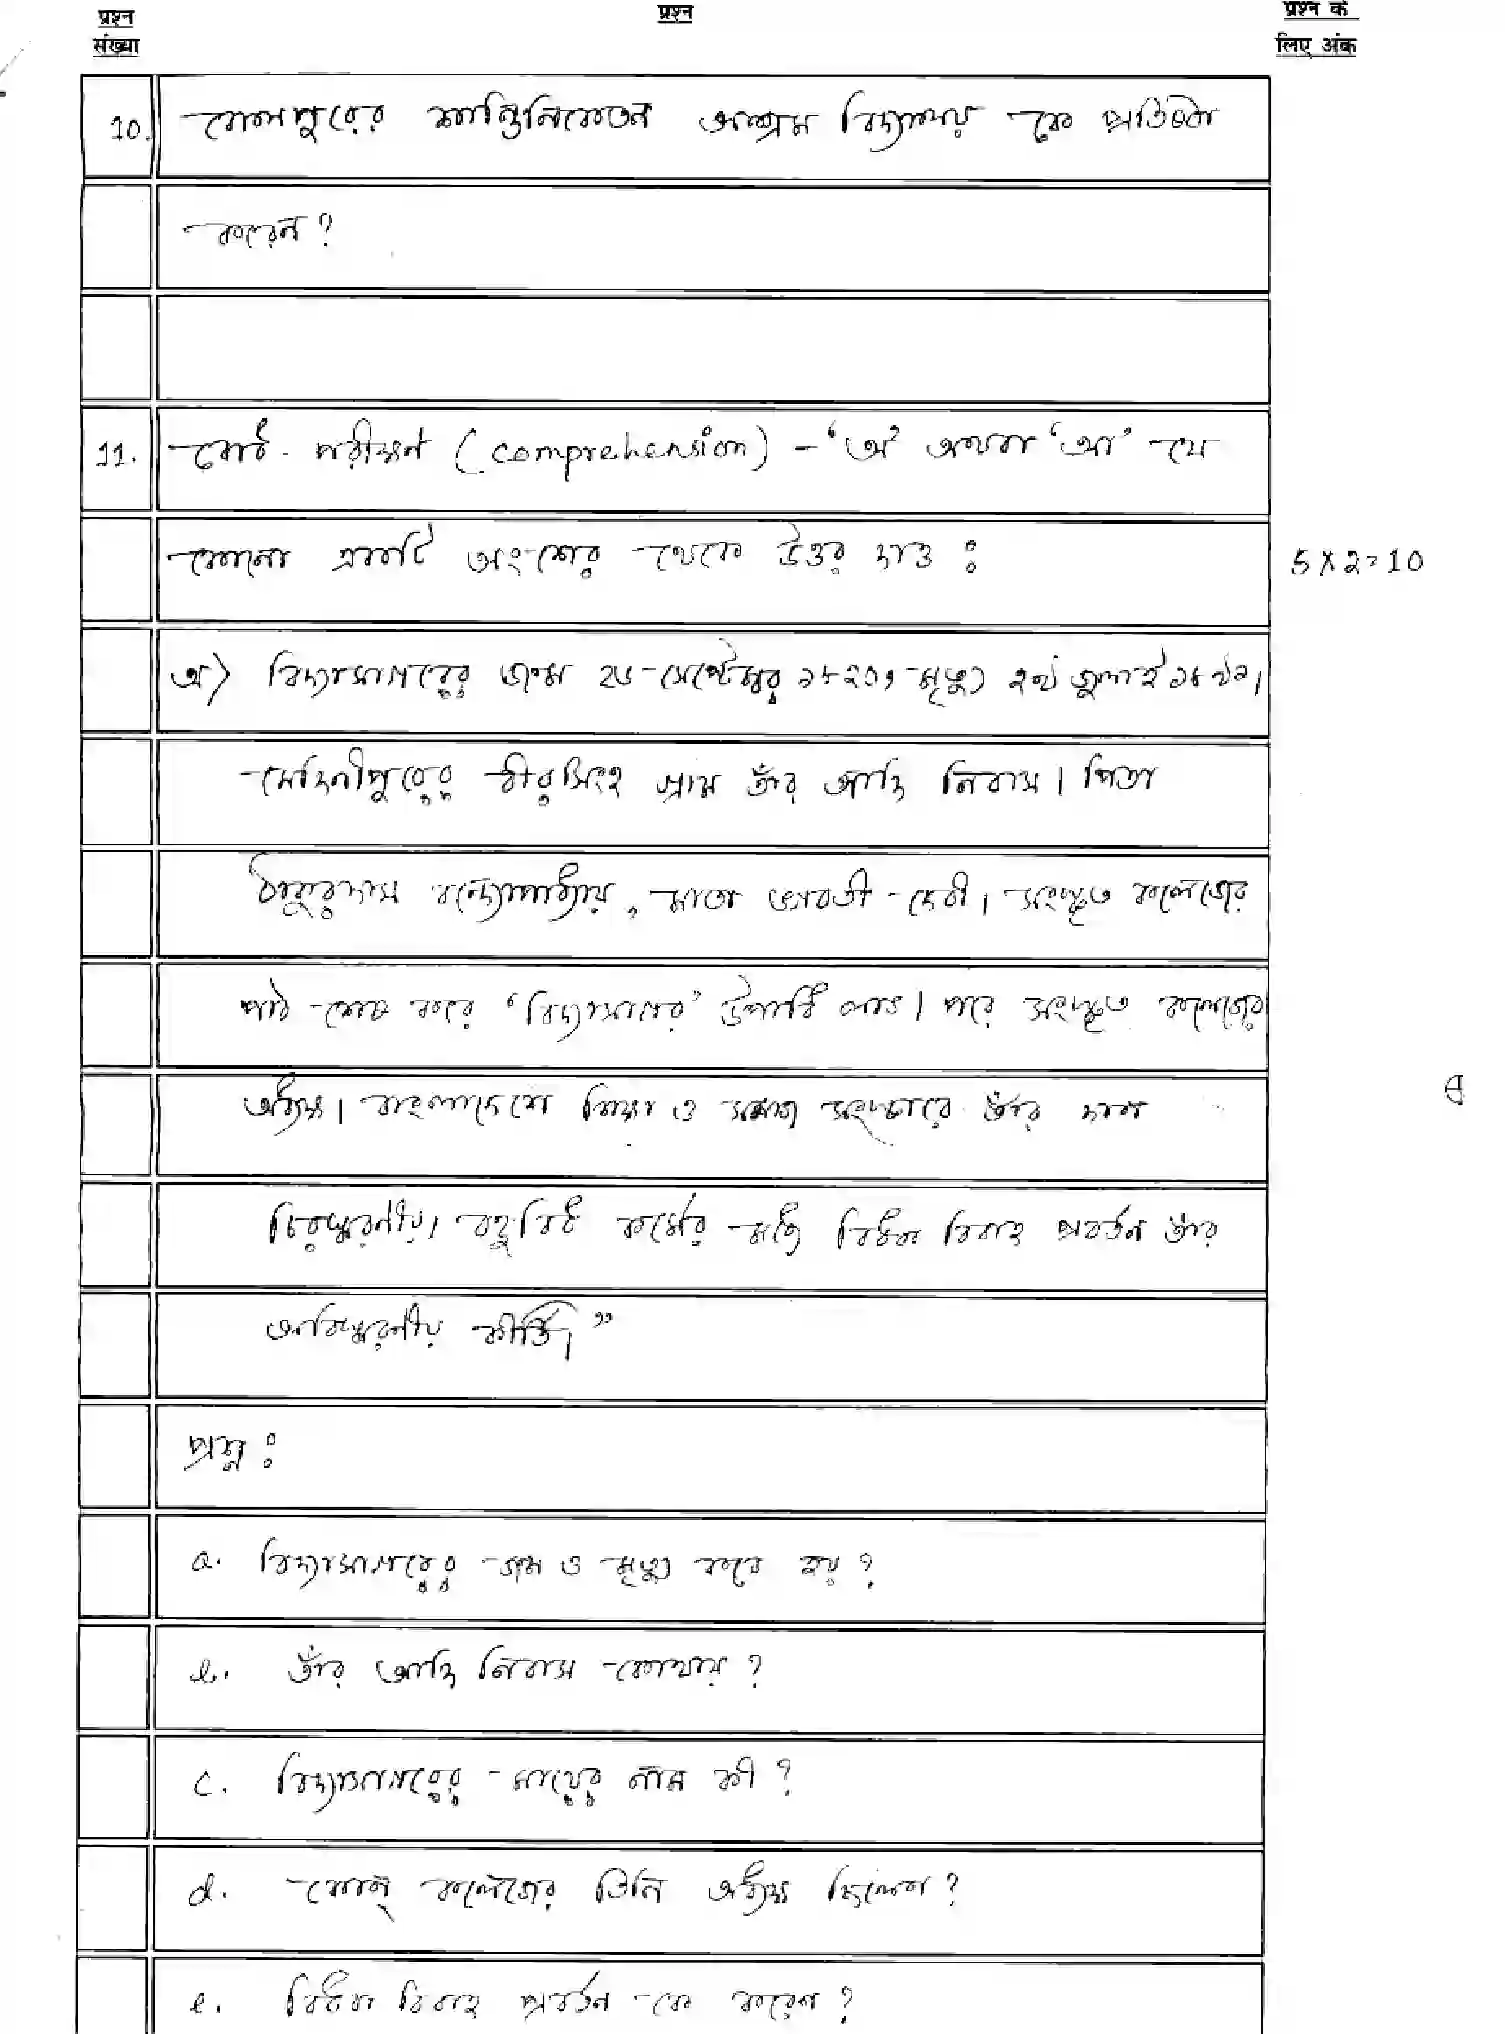 प्रश्न संख्या
प्रश्न
प्रश्न के लिए अंक
10. বোলপুরের শান্তিনিকেতন আশ্রম বিদ্যালয় কে প্রতিষ্ঠা
করেন?
11. বোধ পরীক্ষণ (comprehension) - 'অ' অথবা 'আ' যে
কোনো একটি অংশের থেকে উত্তর দাও : 5 X 2 = 10
অ) বিদ্যাসাগরের জন্ম ২৬ সেপ্টেম্বর ১৮২০, মৃত্যু ২৭ জুলাই ১৮৭২।
মেদিনীপুরের বীরসিংহ গ্রাম তাঁর আদি নিবাস। পিতা
ঠাকুরদাস বন্দ্যোপাধ্যায়, মাতা ভগবতী দেবী। সংস্কৃত কলেজের
পাঠ শেষ করে 'বিদ্যাসাগর' উপাধি লাভ। পরে সংস্কৃত কলেজের
অধ্যক্ষ। বাংলাদেশে শিক্ষা ও সমাজ সংস্কারে তাঁর দান
চিরস্মরণীয়। বহুবিধ কর্মের মধ্যে বিধবা বিবাহ প্রবর্তন তাঁর
অবিস্মরণীয় কীর্তি।"
প্রশ্ন :
a. বিদ্যাসাগরের জন্ম ও মৃত্যু কবে হয়?
b. তাঁর আদি নিবাস কোথায়?
c. বিদ্যাসাগরের মায়ের নাম কী?
d. কোন্ কলেজের তিনি অধ্যক্ষ ছিলেন?
e. বিধবা বিবাহ প্রবর্তন কে করেন?